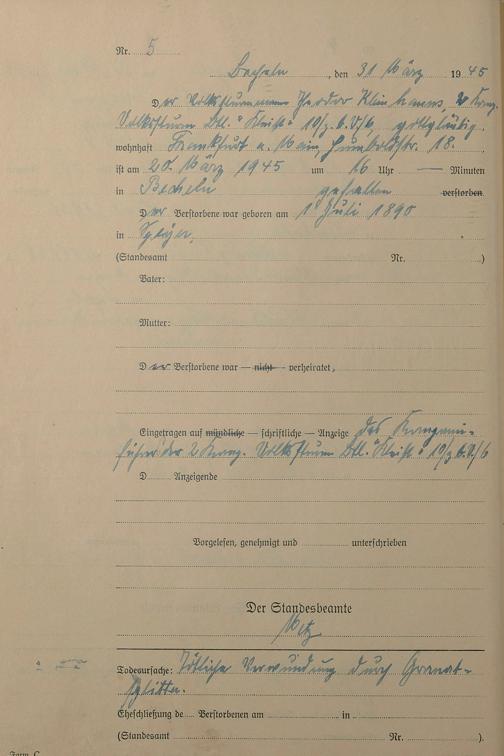 Nr. 5
Becheln, den 31 März 1945
Der Volkssturmmann Theodor Klinkhamms, 2 Komp.
Volkssturm Btl. "Kleist" 10/z.b.V/6, gottgläubig
wohnhaft Frankfurt a. Main, Humboldstr. 18.
ist am 20. März 1945 um 16 Uhr — Minuten
in Becheln gefallen verstorben.
Der Verstorbene war geboren am 1 Juli 1890
in Speyer,
(Standesamt Nr. )
Vater:
Mutter:
Der Verstorbene war — nicht — verheiratet,
Eingetragen auf mündliche — schriftliche — Anzeige des Kompanie-
führer der 2 Komp. Volkssturm Btl. "Kleist" 10/z.b.V/6
D Anzeigende
Vorgelesen, genehmigt und unterschrieben
Der Standesbeamte
Todesursache: Tötliche Verwundung durch Granat-
splitter.
Eheschließung de Verstorbenen am in
(Standesamt Nr. ).
Form. C